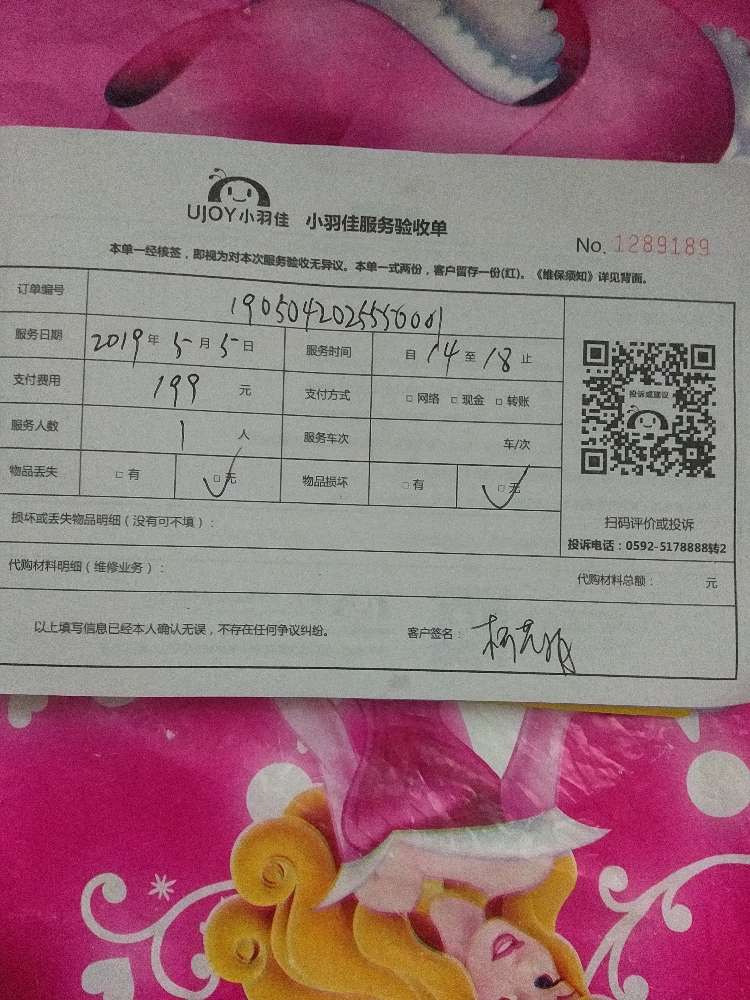 UJOY小羽佳 小羽佳服务验收单
No. 1289189
本单一经核签，即视为对本次服务验收无异议。本单一式两份，客户留存一份(红)。《维保须知》详见背面。
订单编号 1905042025550001
服务日期 2019年5月5日 服务时间 自14至18止
支付费用 199元 支付方式 □网络 □现金 □转账
服务人数 1人 服务车次 车/次
物品丢失 □有 □无 物品损坏 □有 □无
投诉或建议
扫码评价或投诉
投诉电话：0592-5178888转2
损坏或丢失物品明细（没有可不填）：
代购材料明细（维修业务）： 代购材料总额： 元
以上填写信息已经本人确认无误，不存在任何争议纠纷。 客户签名：